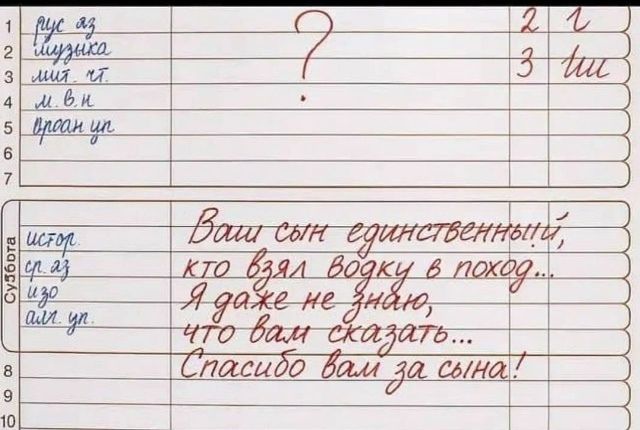 1 рус яз ? 2
2 музыка
3 лит. чт. 3
4 м. в. н
5
6
7
Суббота
истор. Ваш сын единственный,
яз кто взял водку в поход...
изо Я даже не знаю,
что вам сказать...
8 Спасибо вам за сына!
9
10